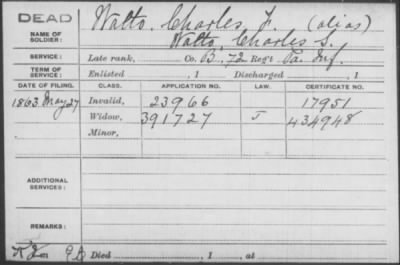 DEAD
NAME OF SOLDIER: Walto, Charles F. (alias)
Walto, Charles S.
SERVICE: Late rank, Co. B, 72 Reg't Pa. Inf.
TERM OF SERVICE: Enlisted , 1 Discharged , 1
DATE OF FILING. CLASS. APPLICATION NO. LAW. CERTIFICATE NO.
1863 May 27 Invalid, 23966 17951
Widow, 391727 434948
Minor,
ADDITIONAL SERVICES:
REMARKS:
Died , 1 , at